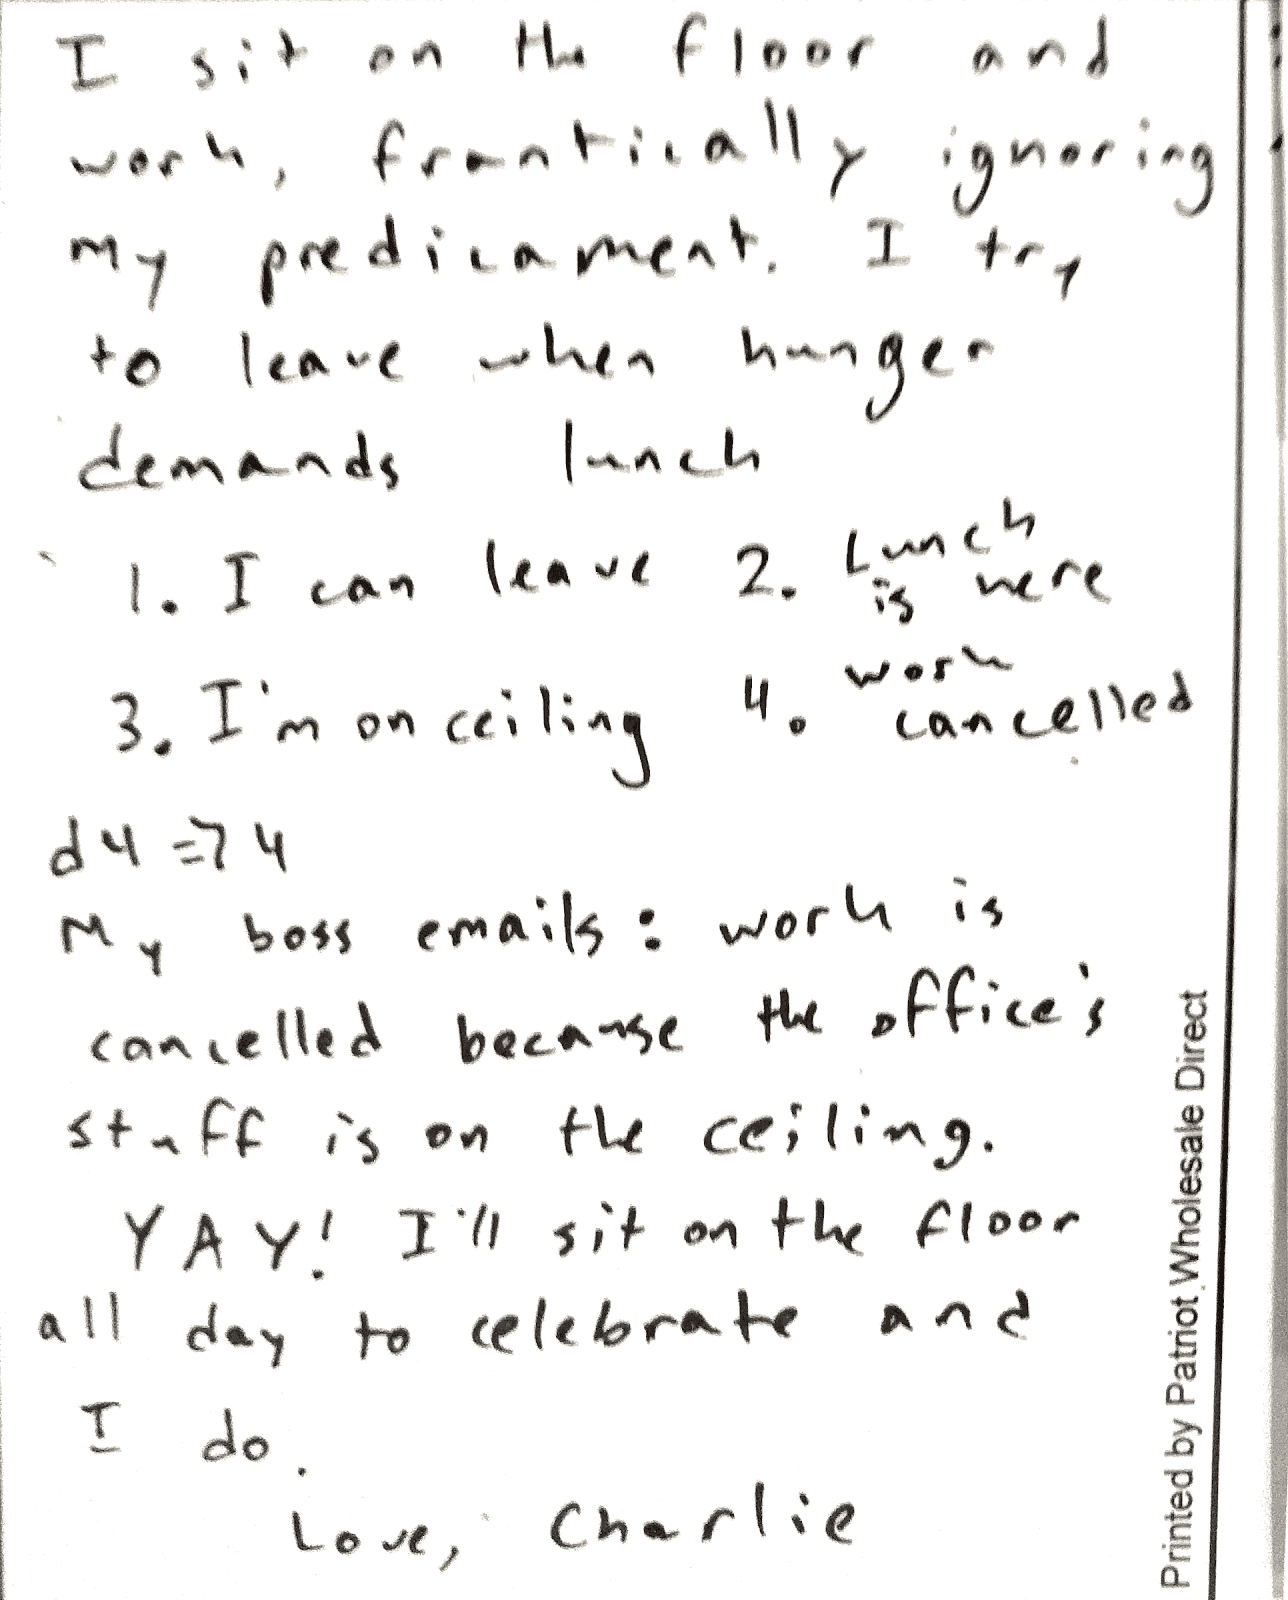 I sit on the floor and
work, frantically ignoring
my predicament. I try
to leave when hunger
demands lunch
1. I can leave 2. Lunch is here
3. I'm on ceiling 4. work cancelled
d4 => 4
My boss emails: work is
cancelled because the office's
stuff is on the ceiling.
YAY! I'll sit on the floor
all day to celebrate and
I do.
Love, Charlie
Printed by Patriot Wholesale Direct